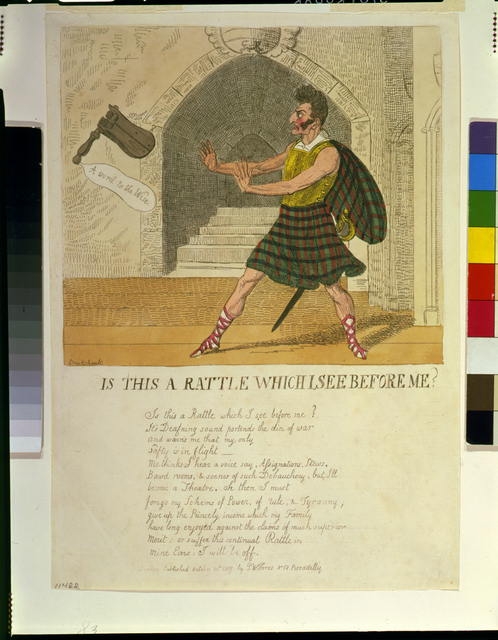 A word to the Wise
IS THIS A RATTLE WHICH I SEE BEFORE ME?
Is this a Rattle which I see before me?
It's Deafning sound portends the din of war
and warns me that my only
safty is in flight —
Methinks I hear a voice say, Assignations, Stews,
Bawd rooms, & scenes of such Debauchery, but I'll
become a Theatre, oh then I must
forego my Schems of Power, of rule, & Tyranny,
give up the Princely income which my Family
have long enjoyed against the claims of much superior
Merit: or suffer this continual Rattle in
mine Ears: I will be off.
Published October 1809 by S W Fores No 50 Piccadilly
11422